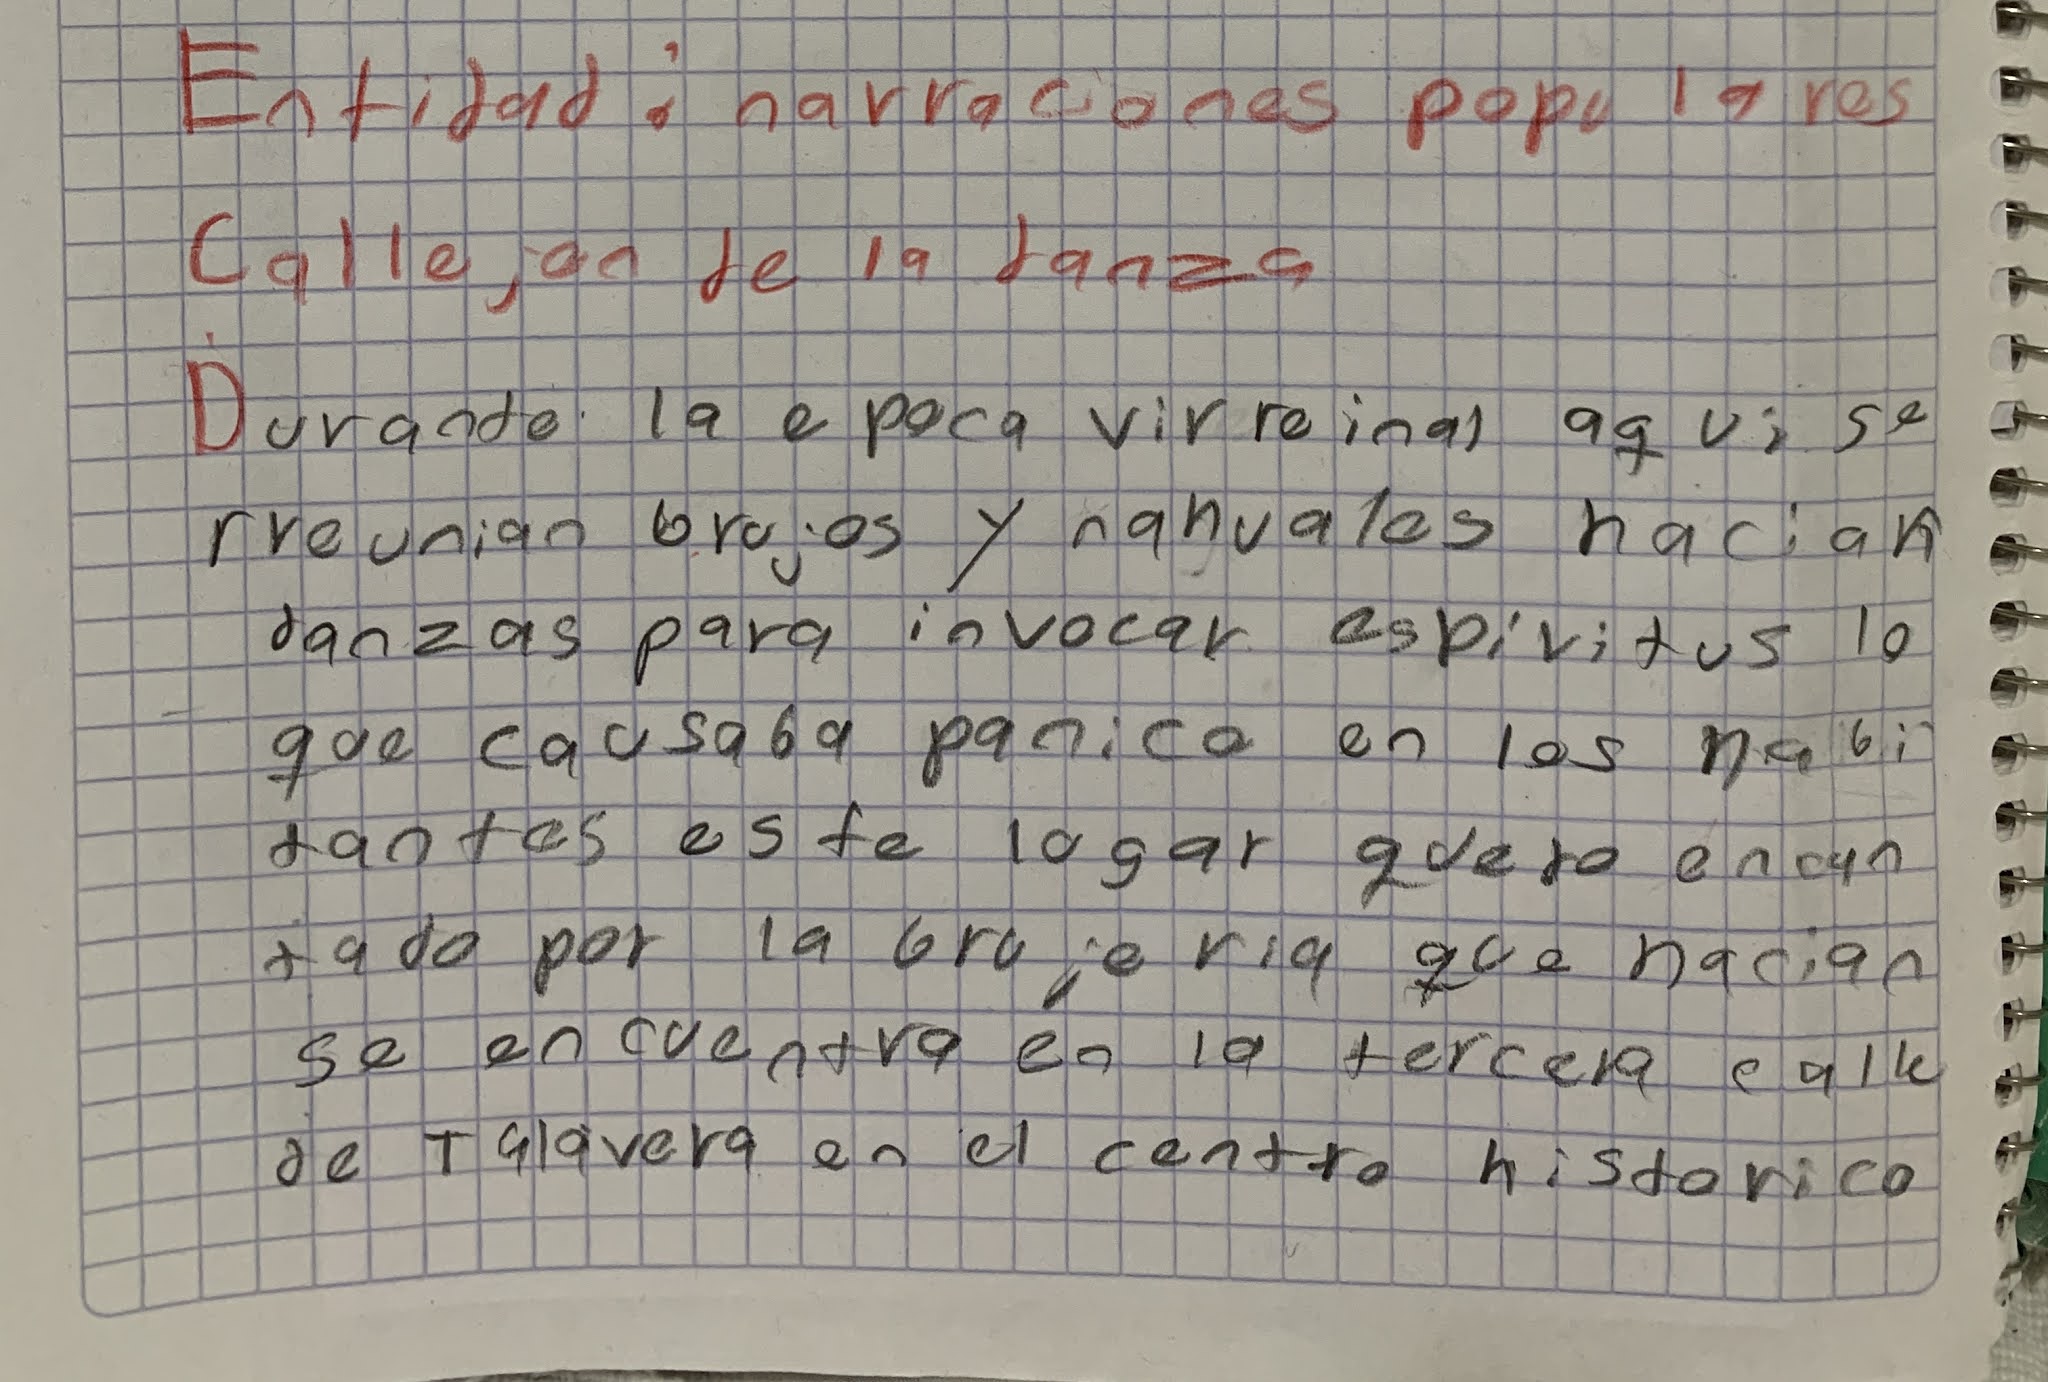 Entidad: narraciones populares
Callejon de la danza
Durante la epoca virreinal aqui se
rreunian brujos y nahuales hacian
danzas para invocar espiritus lo
que causaba panico en los habi
tantes este lugar quedo encan
tado por la brujeria que hacian
se encuentra en la tercera calle
de Talavera en el centro historico